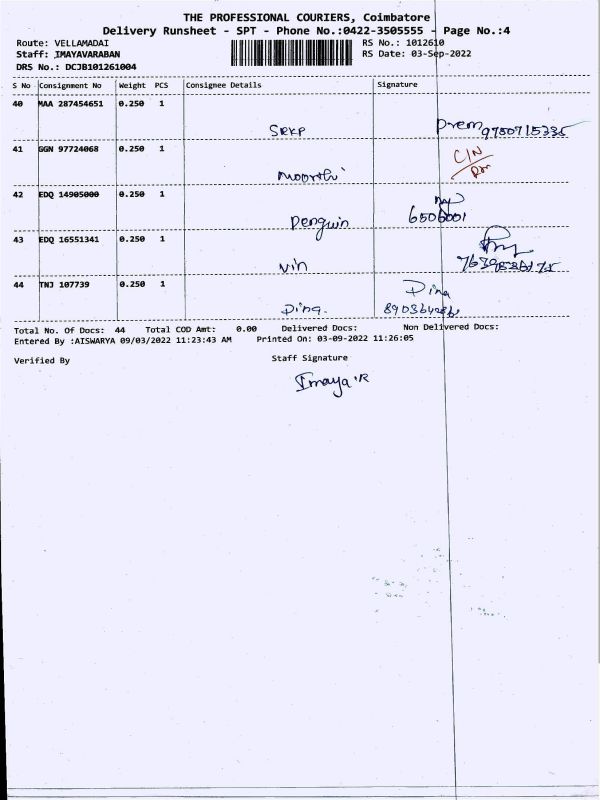 THE PROFESSIONAL COURIERS, Coimbatore
Delivery Runsheet - SPT - Phone No.:0422-3505555 - Page No.:4
Route: VELLAMADAI RS No.: 1012610
Staff: IMAYAVARABAN RS Date: 03-Sep-2022
DRS No.: DCJB101261004
S No Consignment No Weight PCS Consignee Details Signature
40 MAA 287454651 0.250 1
SRKP Prem 9750715335
41 GGN 97724068 0.250 1 C/N
Moorthi
42 EDQ 14905000 0.250 1
Penguin 6506001
43 EDQ 16551341 0.250 1
Vin
44 TNJ 107739 0.250 1 Dina
Dina.
Total No. Of Docs: 44 Total COD Amt: 0.00 Delivered Docs: Non Delivered Docs:
Entered By :AISWARYA 09/03/2022 11:23:43 AM Printed On: 03-09-2022 11:26:05
Verified By Staff Signature
Imaya.R